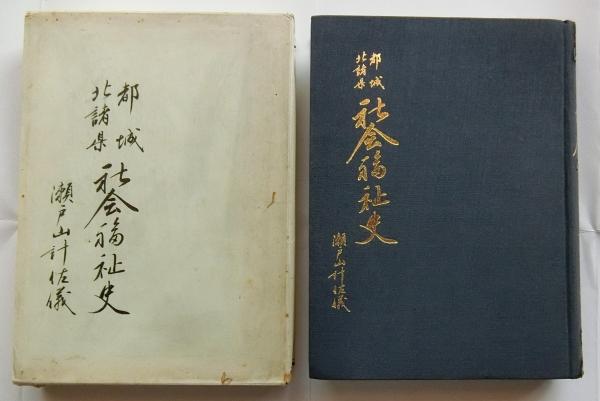 都城
北諸県
社会福祉史
瀬戸山計佐儀
都城
北諸県
社会福祉史
瀬戸山計佐儀